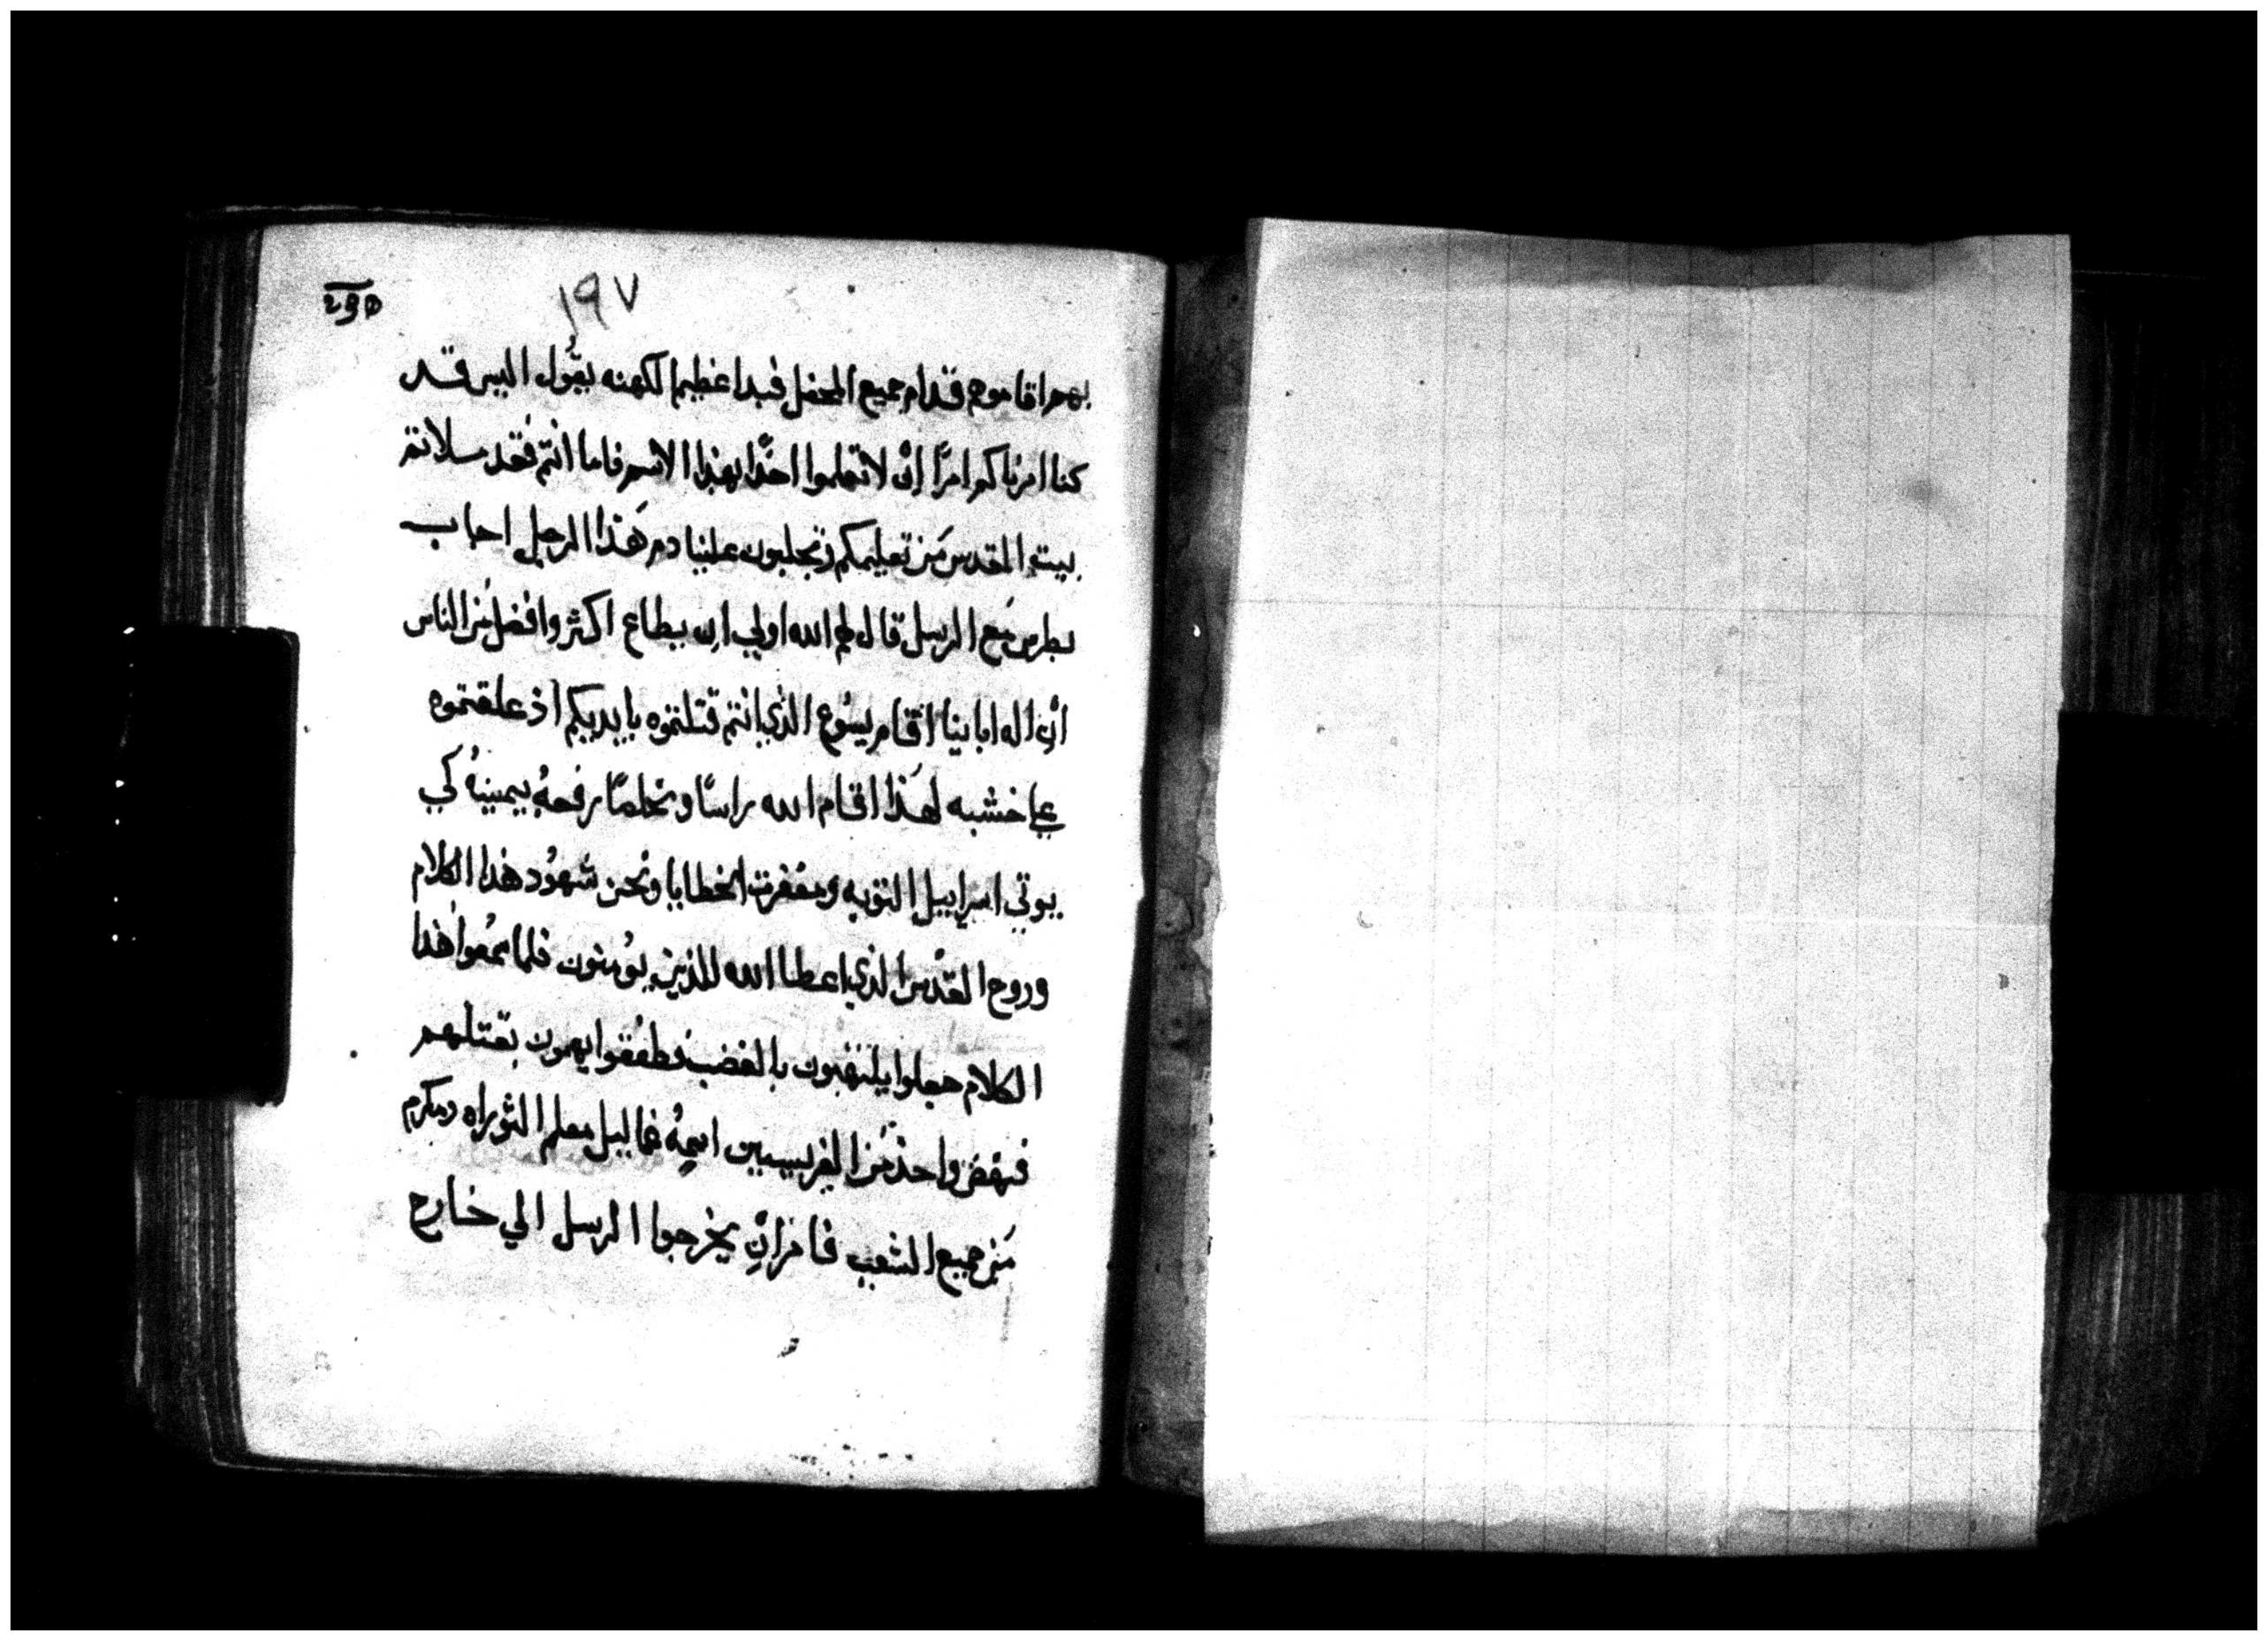 ١٩٧
بهم اقاموهم قدام جميع المحفل فبدا عظيم الكهنه يقول اليس قد
كنا امرناكم امرًا ان لا تعلموا احدًا بهذا الاسم فاما انتم فقد ملاتم
بيت المقدس من تعليمكم وتجلبون علينا دم هذا الرجل اجاب
بطرس مع الرسل قال لهم الله اولي ان يطاع اكثر وافضل من الناس
ان اله ابابينا اقام يسوع الذي انتم قتلتموه بايديكم اذ علقتموه
علي خشبه لهذا اقام الله راسًا ومخلصًا رفعهُ بيمينهُ كي
يوتي اسراييل التوبه ومغفرت الخطايا ونحن شهود هذا الكلام
وروح القدس الذي اعطا الله للذين يومنون فلما سمعوا هذا
الكلام جعلوا يلتهبون بالغضب وطفقوا يهمون بقتلهم
فنهض واحد من الفريسيين اسمهُ غماليل معلم التوراه ومكرم
من جميع الشعب فامر ان يخرجوا الرسل الي خارج